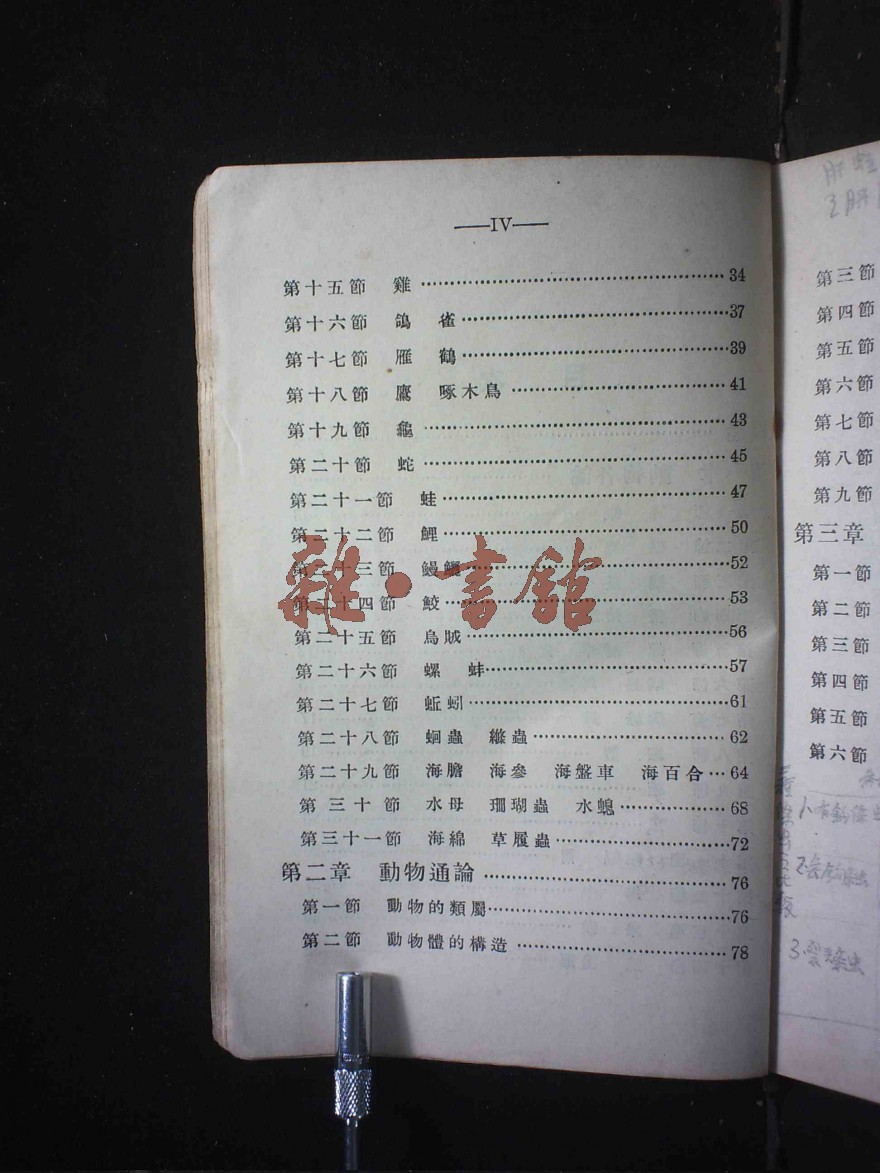 ——IV——
第十五節 雞……34
第十六節 鴿 雀……37
第十七節 雁 鶴……39
第十八節 鷹 啄木鳥……41
第十九節 龜……43
第二十節 蛇……45
第二十一節 蛙……47
第二十二節 鯉……50
第二十三節 鰻鱺……52
第二十四節 鮫……53
第二十五節 烏賊……56
第二十六節 螺 蚌……57
第二十七節 蚯蚓……61
第二十八節 蛔蟲 縧蟲……62
第二十九節 海膽 海參 海盤車 海百合…64
第三十節 水母 珊瑚蟲 水螅……68
第三十一節 海綿 草履蟲……72
第二章 動物通論……76
第一節 動物的類屬……76
第二節 動物體的構造……78
雜·書館
第三節
第四節
第五節
第六節
第七節
第八節
第九節
第三章
第一節
第二節
第三節
第四節
第五節
第六節